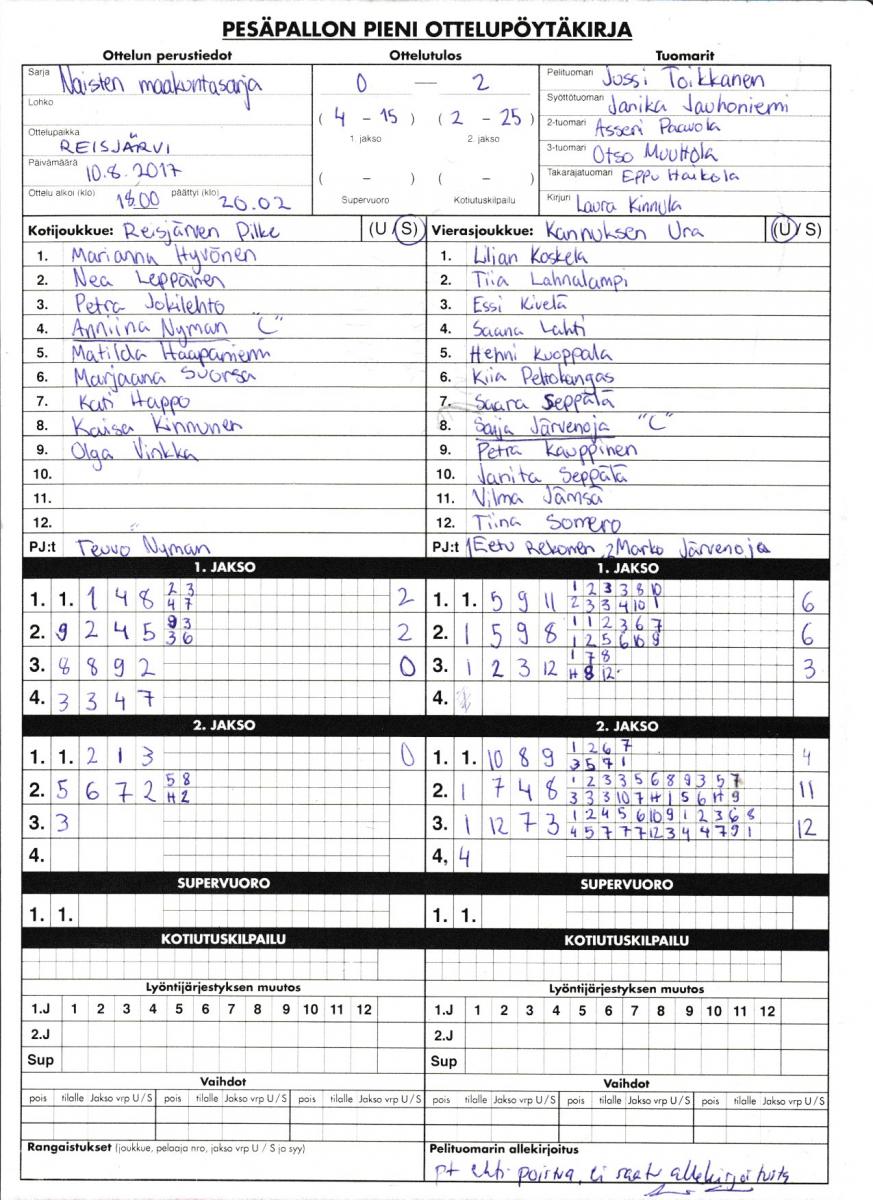 PESÄPALLON PIENI OTTELUPÖYTÄKIRJA
Ottelun perustiedot
Sarja Naisten maakuntasarja
Lohko
Ottelupaikka REISJÄRVI
Päivämäärä 10.8.2017
Ottelu alkoi (klo) 18.00 päättyi (klo) 20.02
Ottelutulos
0 — 2
( 4 - 15 ) ( 2 - 25 )
1. jakso 2. jakso
( - ) ( - )
Supervuoro Kotiutuskilpailu
Tuomarit
Pelituomari Jussi Toikkanen
Syöttötuomari Janika Jauhoniemi
2-tuomari Asseri Paavola
3-tuomari Otso Muuttola
Takarajatuomari Eppu Haikola
Kirjuri Laura Kinnula
Kotijoukkue: Reisjärven Pilke (U / S)
1. Marianna Hyvönen
2. Nea Leppänen
3. Petra Jokilehto
4. Anniina Nyman "C"
5. Matilda Haapaniemi
6. Marjaana Suorsa
7. Kati Happo
8. Kaisa Kinnunen
9. Olga Vinkka
10.
11.
12.
PJ:t Teuvo Nyman
Vierasjoukkue: Kannuksen Ura (U / S)
1. Lilian Koskela
2. Tiia Lahnalampi
3. Essi Kivelä
4. Saana Lahti
5. Henni Kuoppala
6. Kiia Peltokangas
7. Saara Seppälä
8. Saija Järvenoja "C"
9. Petra Kauppinen
10. Janita Seppälä
11. Vilma Jämsä
12. Tiina Somero
PJ:t 1 Eetu Rekonen, 2 Marko Järvenoja
1. JAKSO
1. 1. 1 4 8 2 3 2
4 7
2. 9 2 4 5 9 3 2
3 6
3. 8 8 9 2 0
4. 3 3 4 7
2. JAKSO
1. 1. 2 1 3 0
2. 5 6 7 2 5 8
H 2
3. 3
4.
SUPERVUORO
1. 1.
KOTIUTUSKILPAILU
Lyöntijärjestyksen muutos
1.J 1 2 3 4 5 6 7 8 9 10 11 12
2.J
Sup
Vaihdot
pois tilalle Jakso vrp U / S pois tilalle Jakso vrp U / S pois tilalle Jakso vrp U / S
Rangaistukset (joukkue, pelaaja nro, jakso vrp U / S ja syy)
1. JAKSO
1. 1. 5 9 11 1 2 3 3 8 10 6
2 3 3 4 10 1
2. 1 5 9 8 1 1 2 3 6 7 6
1 2 5 6 10 9
3. 1 2 3 12 1 7 8 3
H 8 12
4.
2. JAKSO
1. 1. 10 8 9 1 2 6 7 4
3 5 7 1
2. 1 7 4 8 1 2 3 3 5 6 8 9 3 5 7 11
3 3 3 10 7 H 1 5 6 H 9
3. 1 12 7 3 1 2 4 5 6 10 9 1 2 3 6 8 12
4 5 7 7 7 12 3 4 4 7 9 1
4, 4
SUPERVUORO
1. 1.
KOTIUTUSKILPAILU
Lyöntijärjestyksen muutos
1.J 1 2 3 4 5 6 7 8 9 10 11 12
2.J
Sup
Vaihdot
pois tilalle Jakso vrp U / S pois tilalle Jakso vrp U / S pois tilalle Jakso vrp U / S
Pelituomarin allekirjoitus
pt ehti poistua, ei saatu allekirjoitusta